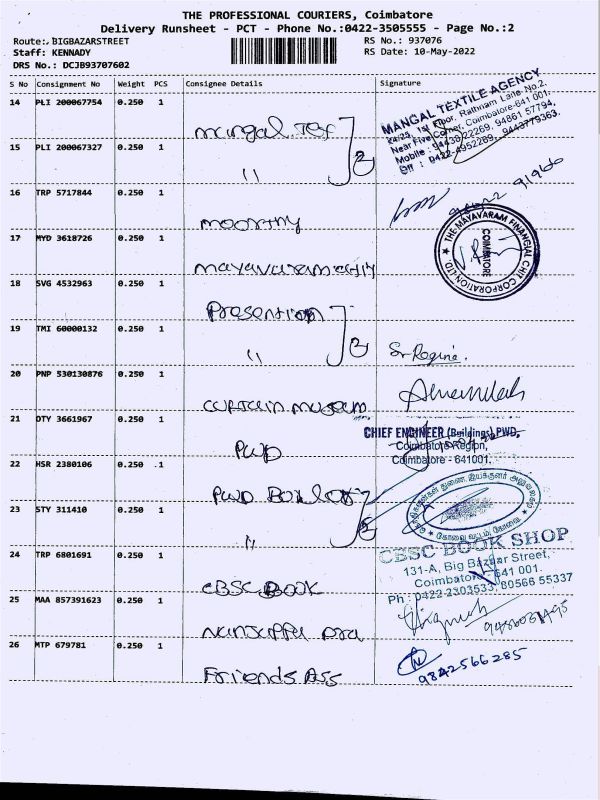 THE PROFESSIONAL COURIERS, Coimbatore
Delivery Runsheet - PCT - Phone No.:0422-3505555 - Page No.:2
Route:. BIGBAZARSTREET RS No.: 937076
Staff: KENNADY RS Date: 10-May-2022
DRS No.: DCJB93707602
S No Consignment No Weight PCS Consignee Details Signature
14 PLI 200067754 0.250 1 Mangal Tex
MANGAL TEXTILE AGENCY
24/25, 1st Floor, Rathnam Lane No.2,
Near Five Corner, Coimbatore-641 001.
Mobile : 94438 22269, 94861 57794,
Off : 0422-4952269, 9443779363.
15 PLI 200067327 0.250 1 " 2
16 TRP 5717844 0.250 1 moorthy
17 MYD 3618726 0.250 1 mayavaram chit
THE MAYAVARAM FINANCIAL CHIT CORPORATION LTD.
COIMBATORE
18 SVG 4532963 0.250 1 Presention
19 TMI 60000132 0.250 1 " 2 Sr Regina.
20 PNP 530130876 0.250 1 curtain museum
21 DTY 3661967 0.250 1 PWD
CHIEF ENGINEER (Buildings) PWD,
Coimbatore Region,
Coimbatore - 641001.
22 HSR 2380106 0.250 .1 PWD
23 STY 311410 0.250 1 "
24 TRP 6801691 0.250 1 CBSC BOOK
CBSC BOOK SHOP
131-A, Big Bazaar Street,
Coimbatore - 641 001.
Ph : 0422-2303533, 80566 55337
25 MAA 857391623 0.250 1 Nanjappa
26 MTP 679781 0.250 1 Friends Ass 9842566285